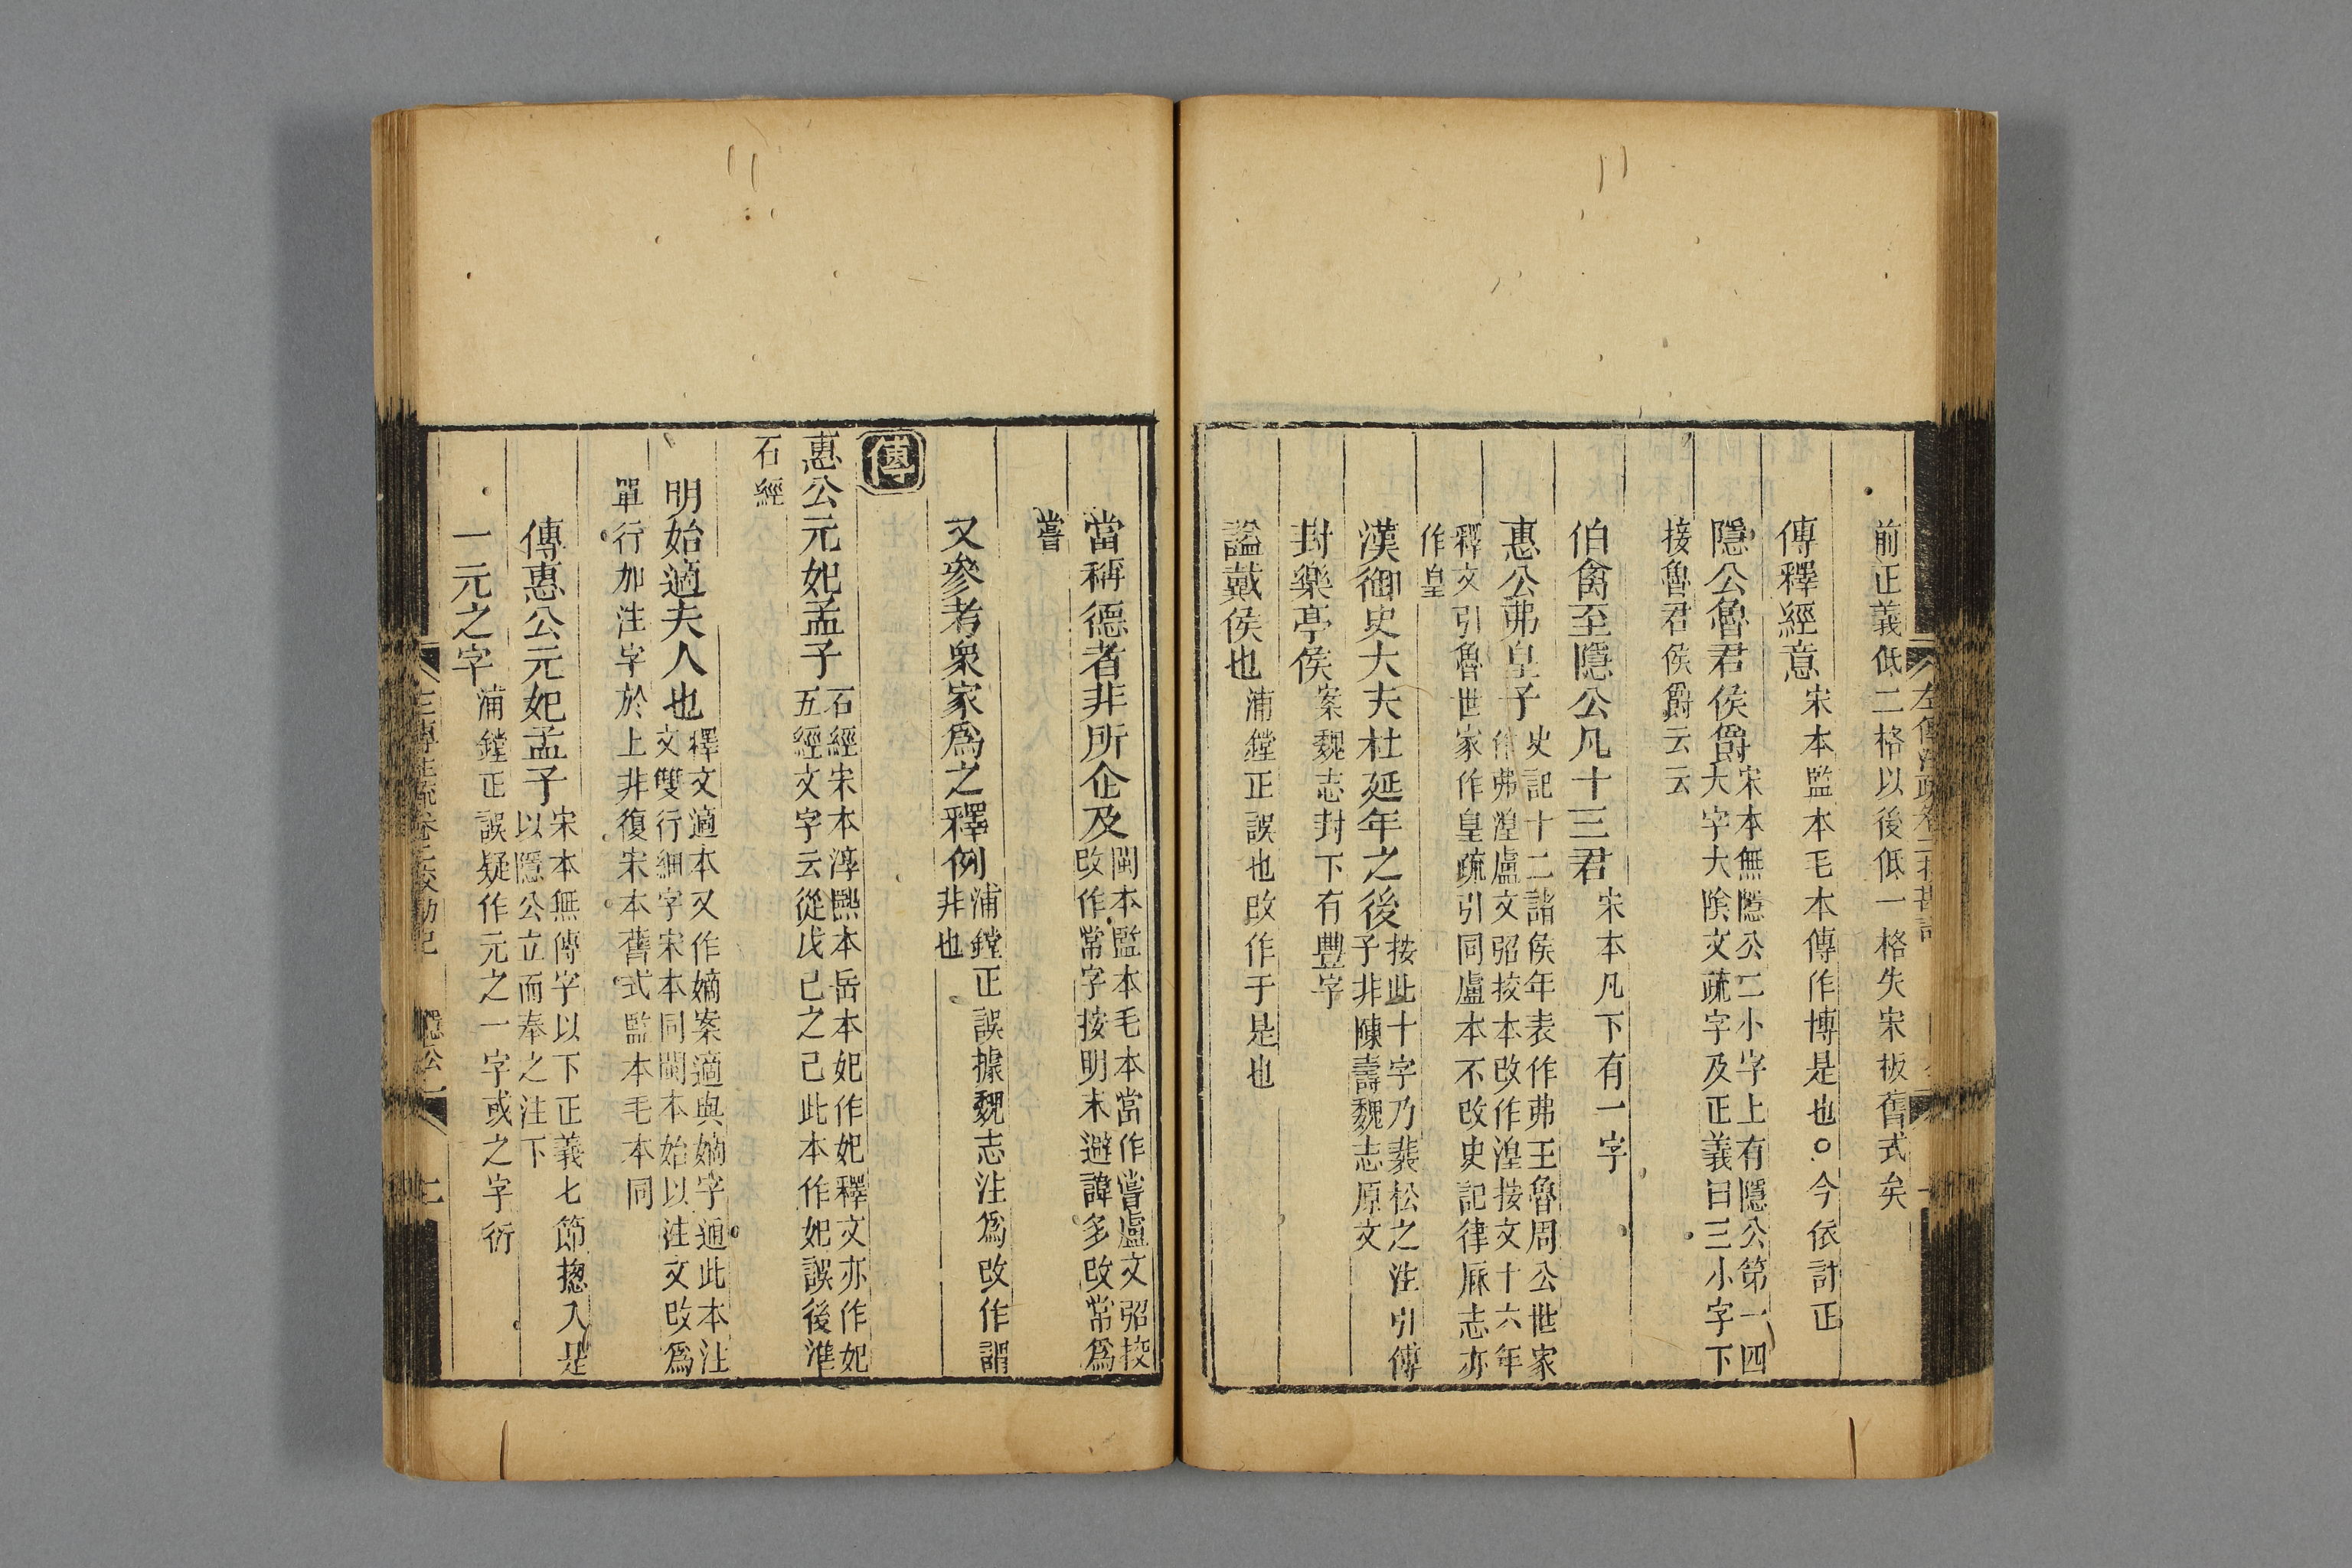 前正義低二格以後低一格失宋板舊式矣
傳釋經意宋本監本毛本傳作博是也○今依訂正
隱公魯君侯爵宋本無隱公二小字上有隱公第一四
大字大陰文疏字及正義曰三小字下
接魯君侯爵云云
伯禽至隱公凡十三君宋本凡下有一字
惠公弗皇子史記十二諸侯年表作弗王魯周公世家
作弗湟盧文弨挍本改作湟按文十六年
釋文引魯世家作皇疏引同盧本不改史記律厤志亦
作皇
漢御史大夫杜延年之後按此十字乃裴松之注引傅
子非陳壽魏志原文
封樂亭侯案魏志封下有豐字
諡戴侯也浦鏜正誤也改作于是也
當稱德者非所企及閩本監本毛本當作嘗盧文弨挍
改作常字按明末避諱多改常爲
嘗
又參考衆家爲之釋例浦鏜正誤據魏志注爲改作謂
非也
傳
惠公元妃孟子石經宋本淳熙本岳本妃作妃釋文亦作妃
五經文字云從戊己之己此本作妃誤後準
石經
明始適夫人也釋文適本又作嫡案適與嫡字通此本注
文雙行細字宋本同閩本始以注文改爲
單行加注字於上非復宋本舊式監本毛本同
傳惠公元妃孟子宋本無傳字以下正義七節揔入是
以隱公立而奉之注下
一元之字浦鏜正誤疑作元之一字或之字衍